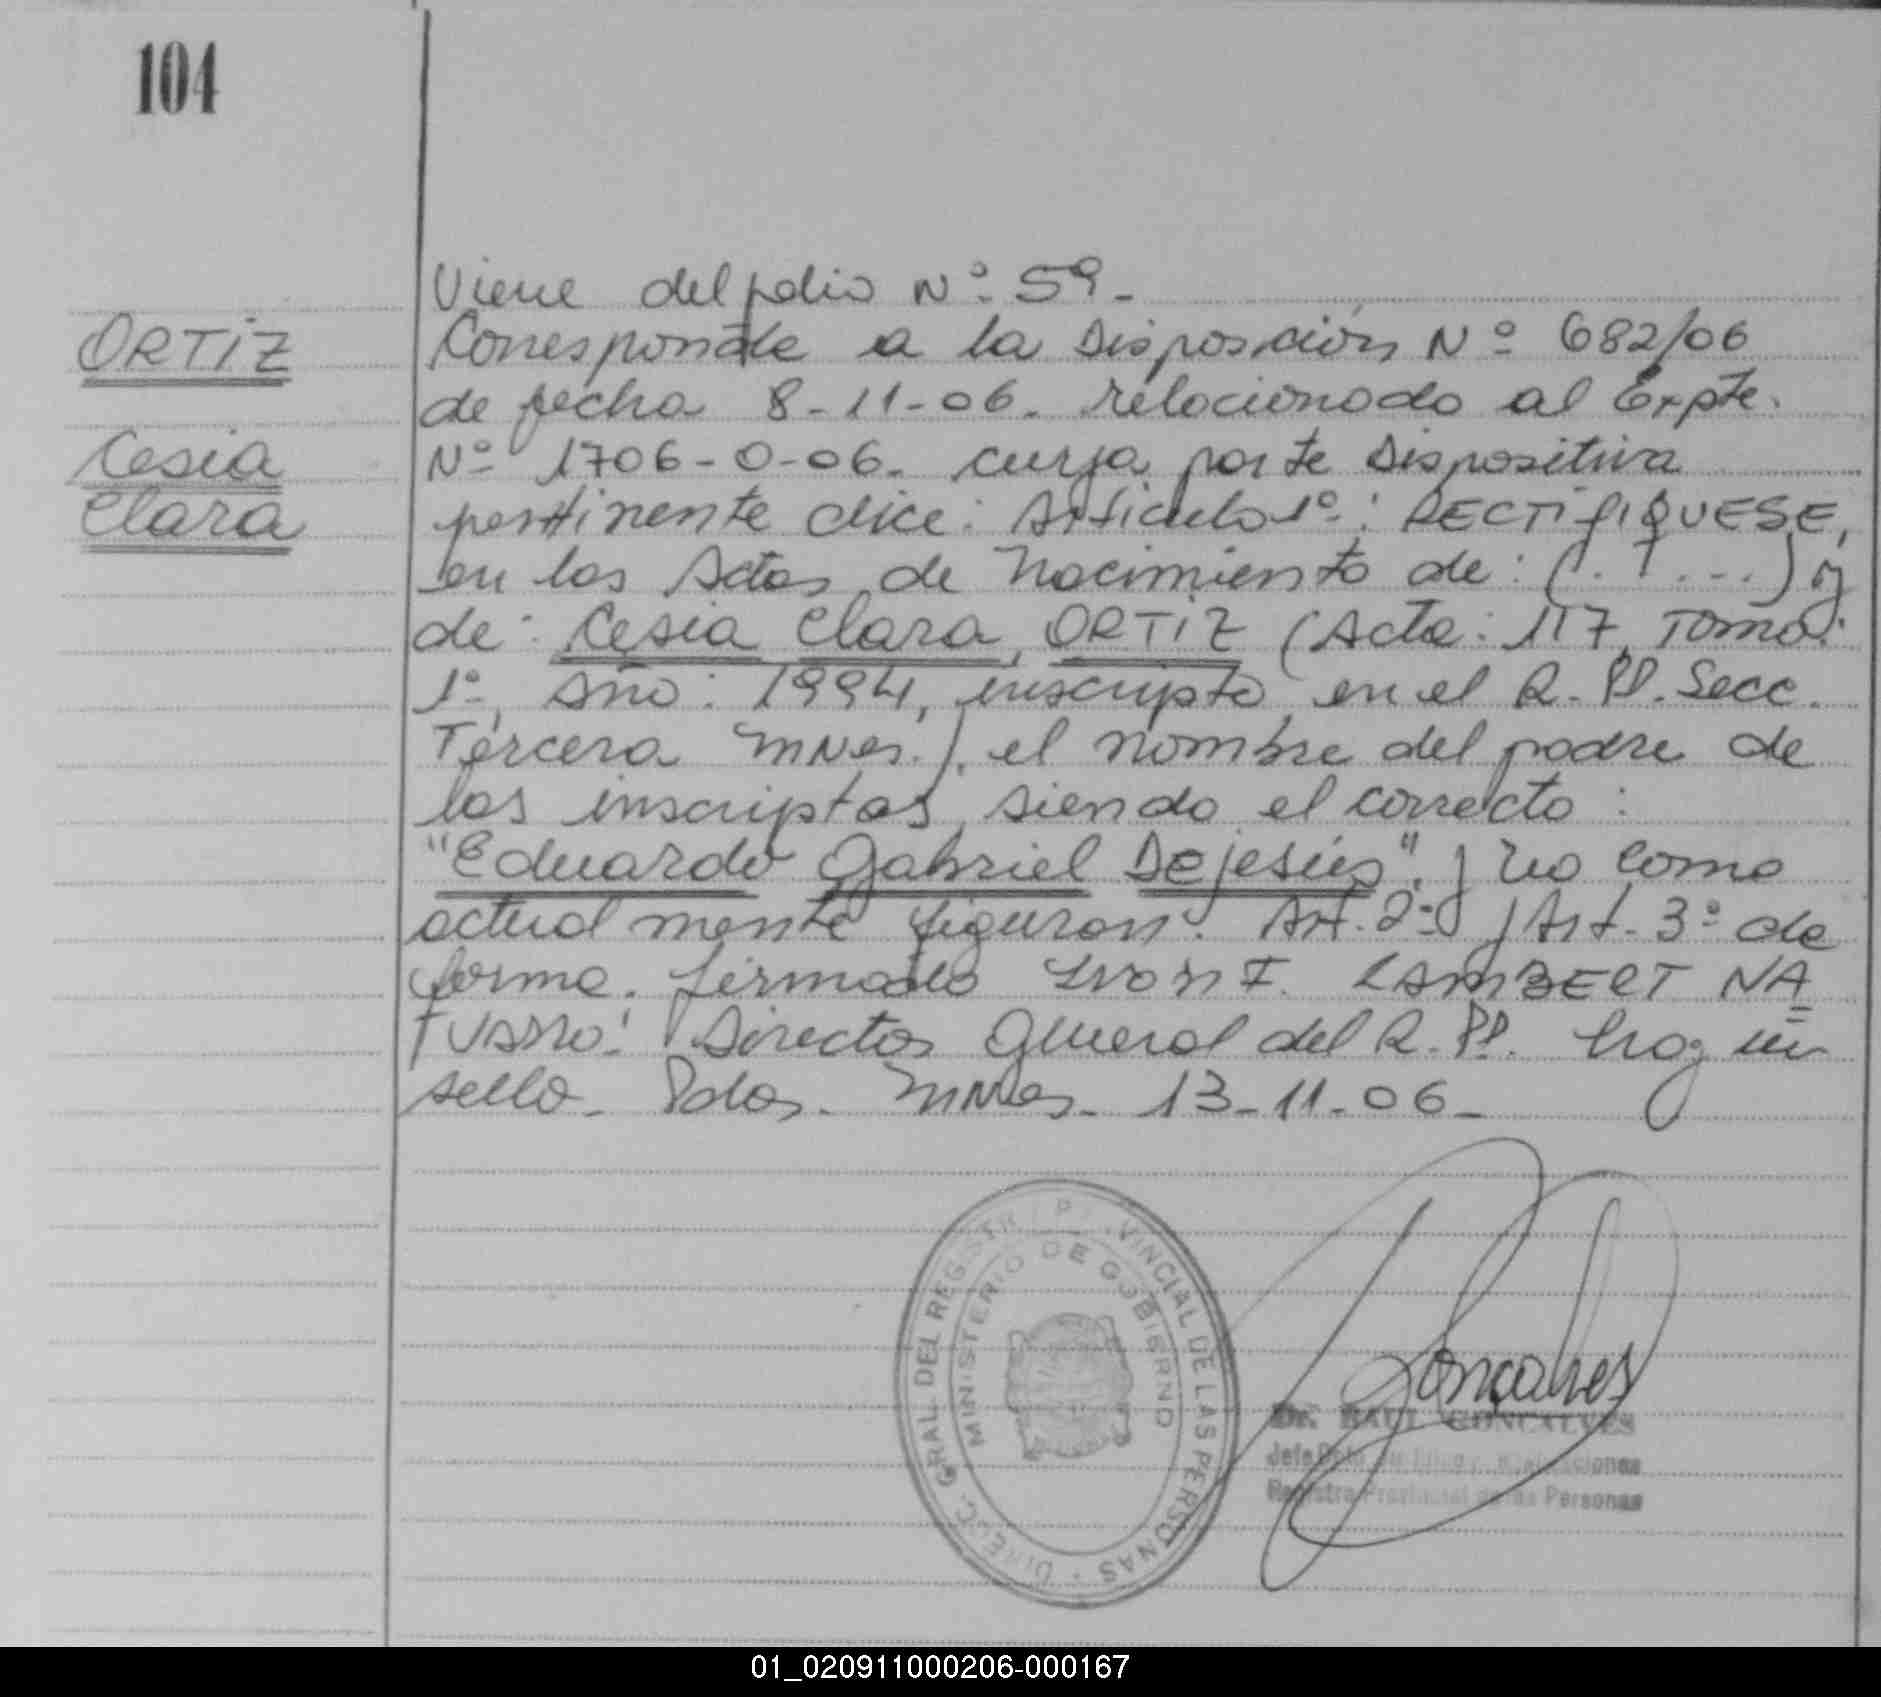 104
Viene del folio Nº 59-
ORTIZ
Corresponde a la Disposición Nº 682/06
de fecha 8-11-06. relacionado al Expte.
Cesia
Nº 1706-O-06. cuya parte Dispositiva
Clara
pertinente dice: Artículo 1º: RECTIFIQUESE,
en las Actas de Nacimiento de: (. . . . .) y
de: Cesia Clara, ORTIZ (Acta: 117, Tomo:
1º, Año: 1994, inscripta en el R.PP. Secc.
Tercera MNes.). el nombre del padre de
las inscriptas, siendo el correcto:
"Eduardo Gabriel Dejesús". y no como
actualmente figuran. Art. 2º y Art. 3º de
forma. firmado LAMBERT NA
Director General del R.PP. hay un
sello. Pdas. MNes. 13-11-06-
DIRECC. GRAL. DEL REGISTRO PROVINCIAL DE LAS PERSONAS
MINISTERIO DE GOBIERNO
Gonçalves
Dr. RAUL GONCALVES
Jefe Dpto
Registro Provincial de las Personas
01_020911000206-000167